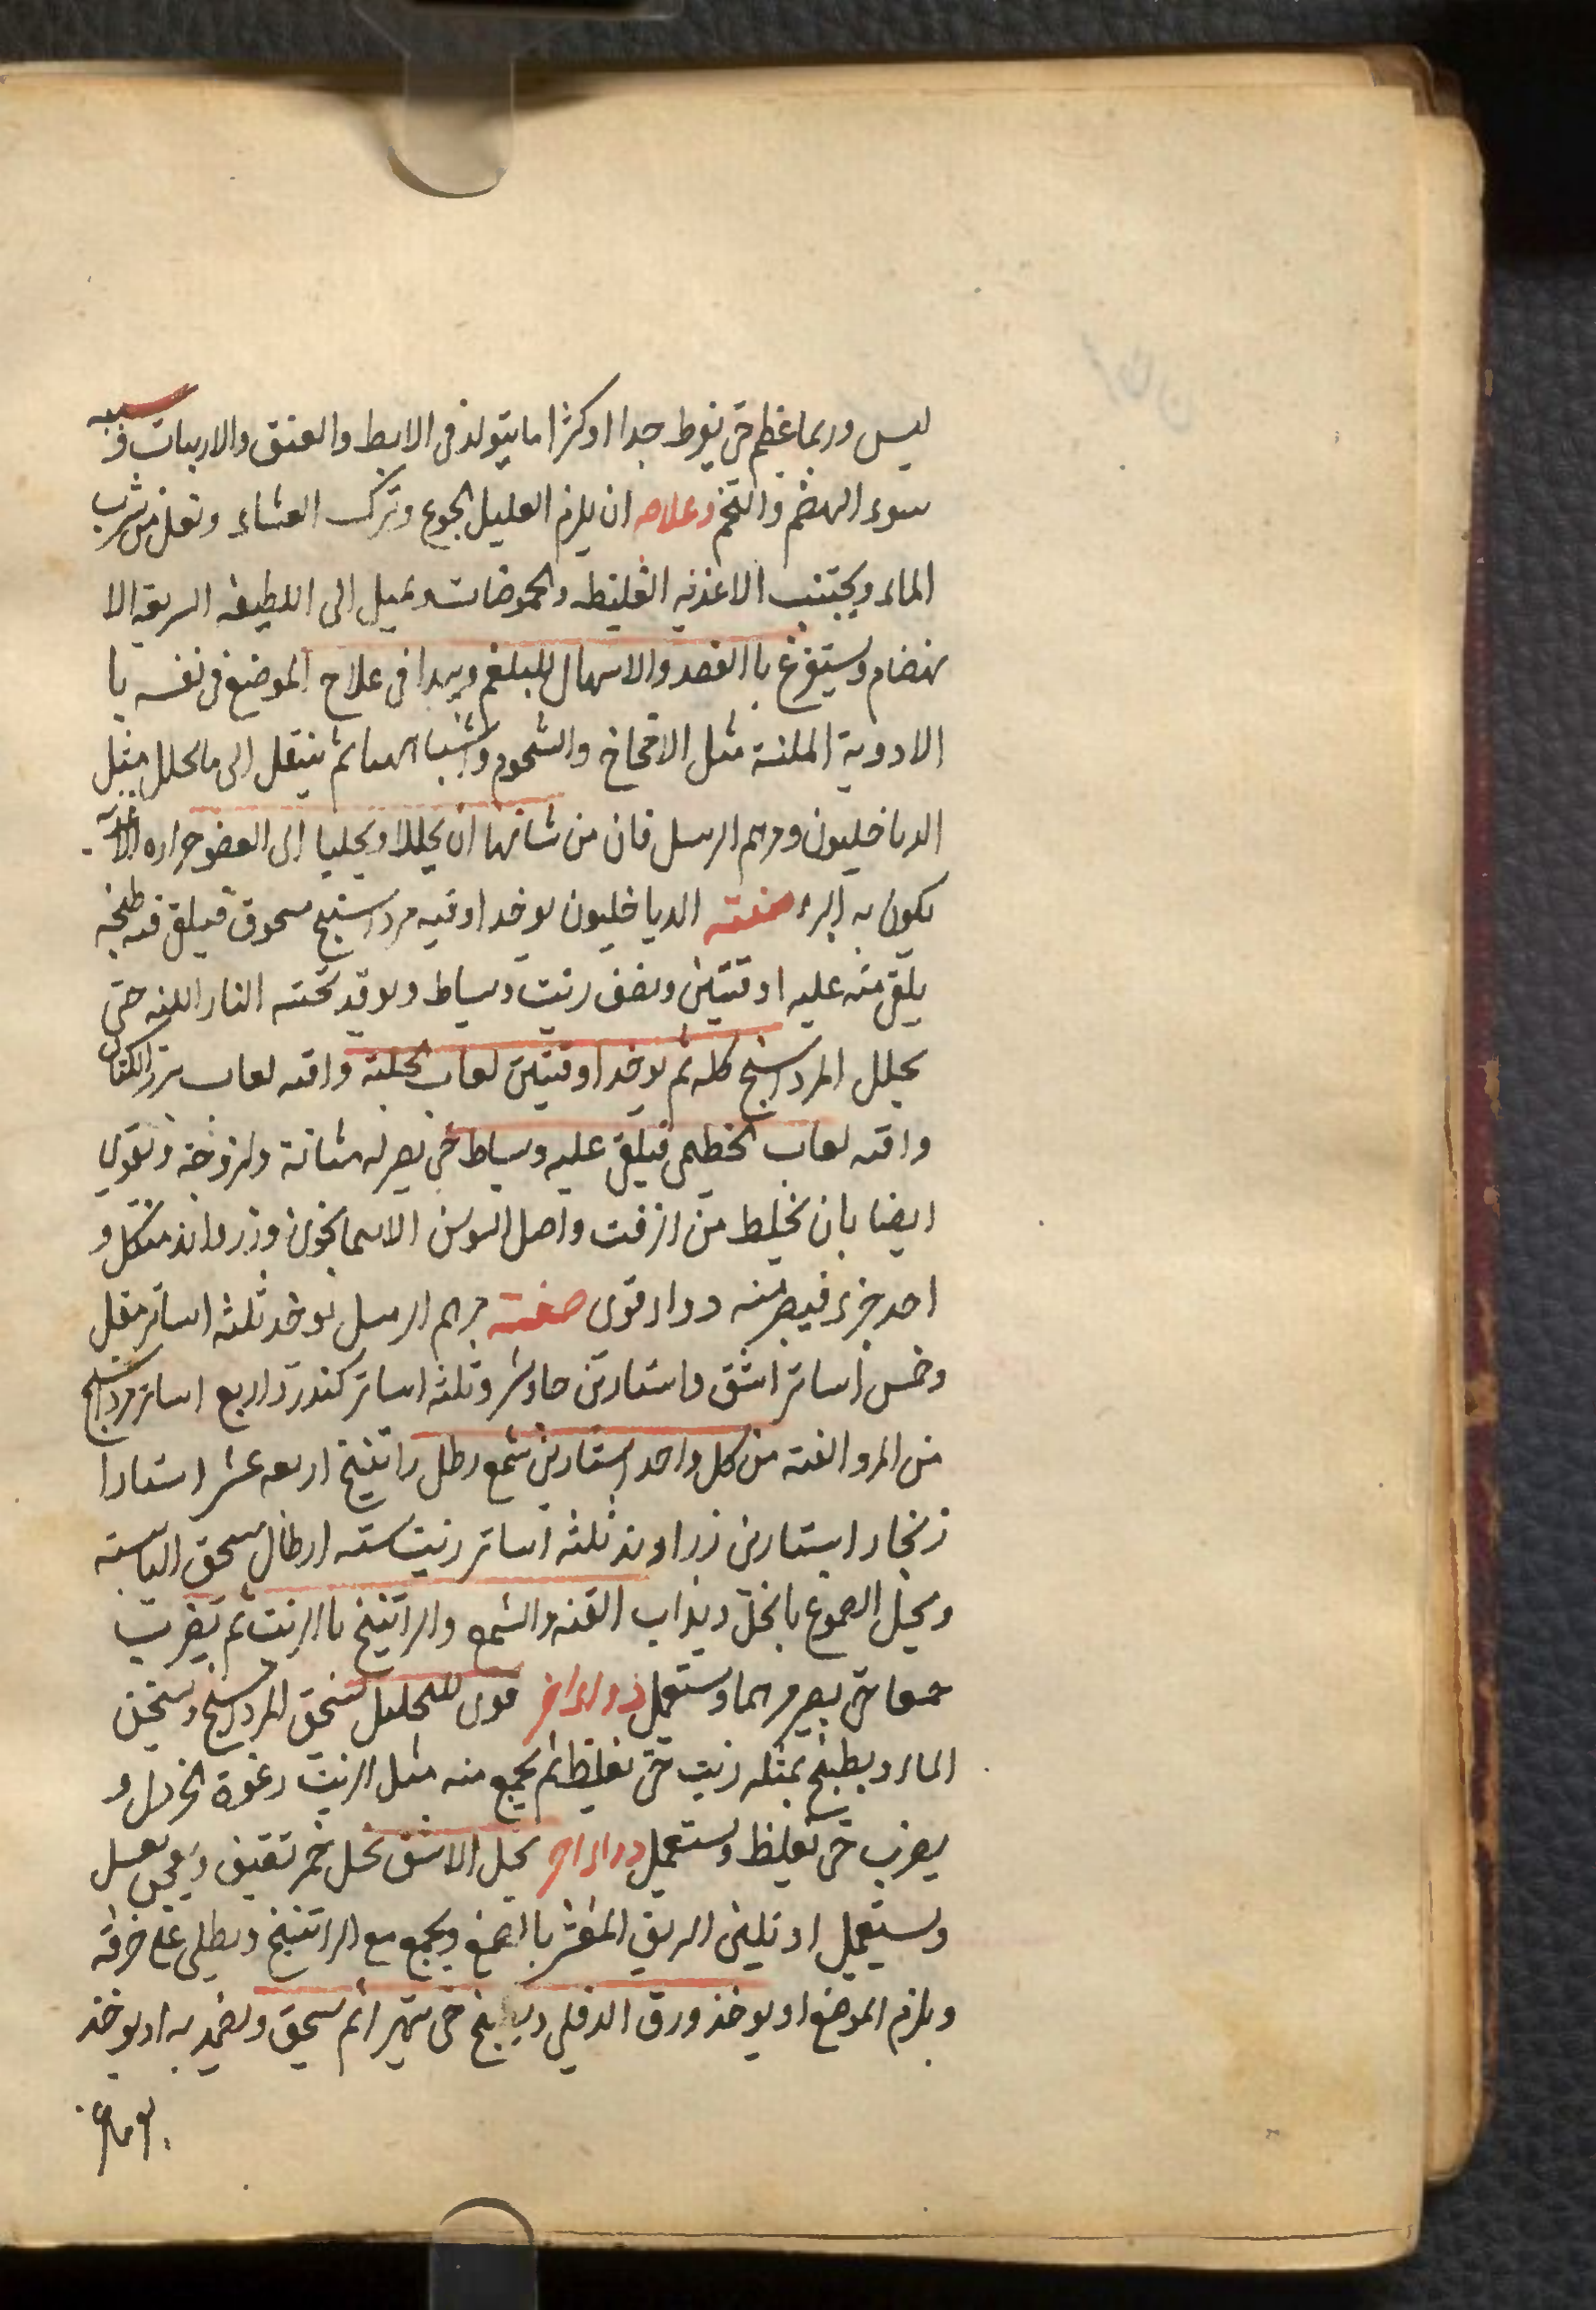 ليس وربما عظم حتى يفرط جدا اوكثرا ما يتولد فى الابط والعنق والاربيات وسببه
سوء الهضم والتخم وعلاجه ان يلزم العليل الجوع وترك العشاء وتقلل من شرب
الماء ويجتنب الاغذيه الغليظه والحموضات ويميل الى اللطيفه السريعه الا
نهضام ويستفرغ با الفصد والاسهال للبلغم ويبدا فى علاج الموضع فى نفسه با
الادوية الملينة مثل الامخاخ والشحوم واشباههما ثم ينتقل الى ما يحلل مثل
الدياخليون ومرهم الرسل فان من شانهما ان يحللا ويجلبا الى العضو حراره
يكون به البرء صفته الدياخليون يوخد اوقيه مرداسنج مسحوق فيلقى فى طنجه
يلقى منه عليه اوقيتين ونصف زيت ويساط ويوقد تحته النار اللينه حتى
يحلل المرداسنج كله ثم يوخد اوقيتين لعاب الحلبة واقيه لعاب بزر الكتان
واقيه لعاب الخطمى فيلقى عليه ويساط حتى يصير له متانة ولزوجة وتقوى
ايضا بان يخلط من الزفت واصل السوسن الاسمانجونى وزراوند من كل و
احد جزء فيصير منه دواء قوى صفته مرهم الرسل يوخد ثلثه اساتر مقل
وخمس اساتر اشق واستارين جاوشير وثلثه اساتر كندر واربع اساتر مرداسنج
من المر والقنه من كل واحد استارين شمع رطل راتنيخ اربعه عشر استارا
زنجار استارين زراوند ثلثه اساتر زيت سته ارطال يسحق اليابسه
ويحل الصموغ بالخل ويذاب القنه والشمع والراتنيخ با الزيت ثم يضرب
جميعا حتى يصير مرهما ويستعمل دواء اخر قوى للتحليل يسحق المرداسنج ويسخن
الماء ويطبخ بمثله زيت حتى تغلظ ثم يجمع منه مثل الزيت رغوة الخردل و
يضرب حتى تغلظ ويستعمل دواء اخر يحل الاشق بخل خمر ثقيف ويعجن بعسل
ويستعمل او تلين الدبق المقشر با الصمغ ويجمع مع الراتنيخ ويطلى على خرقه
ويلزم الموضع او يوخذ ورق الدفلى ويطبخ حتى يتهرا ثم يسحق ويضمد به او يوخذ